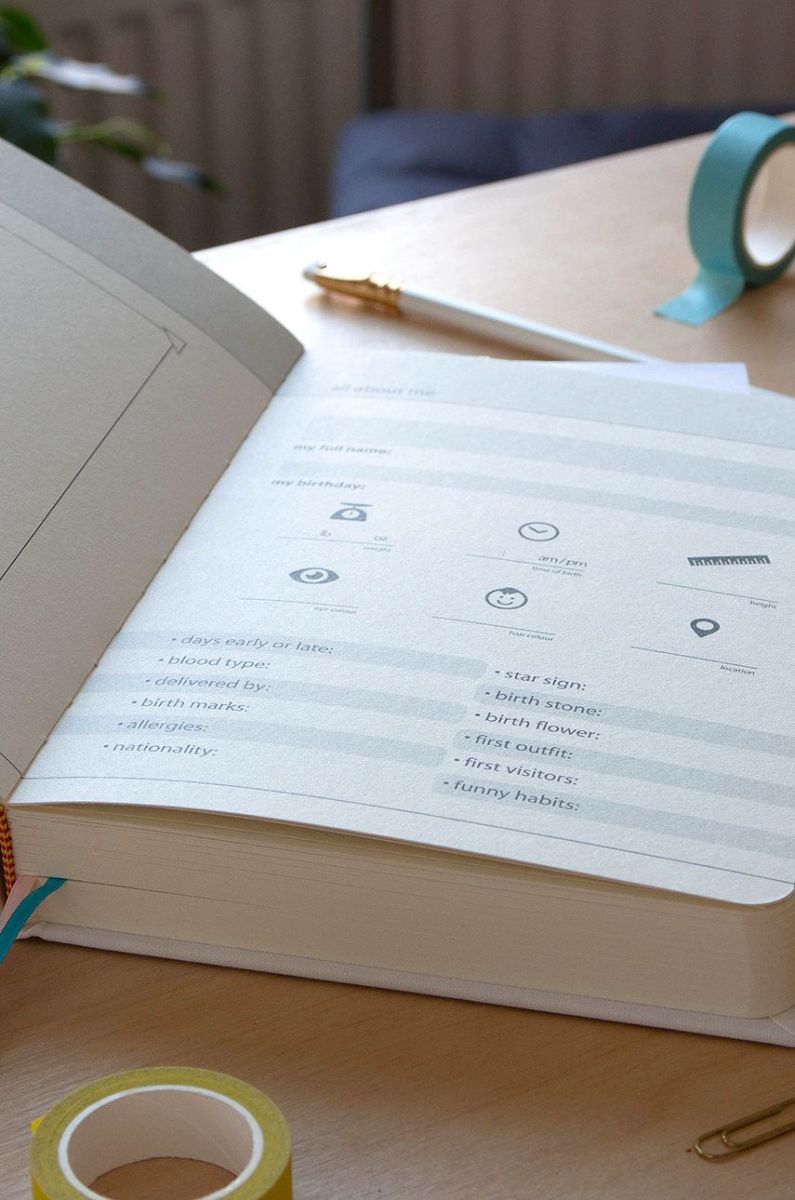 all about me
my full name:
my birthday:
lb oz
weight
am/pm
time of birth
height
eye colour
hair colour
location
• days early or late:
• blood type:
• delivered by:
• birth marks:
• allergies:
• nationality:
• star sign:
• birth stone:
• birth flower:
• first outfit:
• first visitors:
• funny habits: